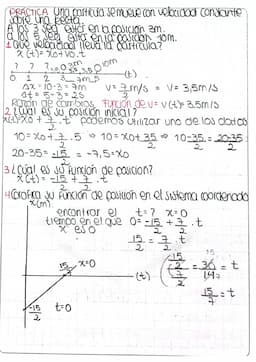 PRÁCTICA Una partícula se mueve con velocidad constante
sobre una recta.
A los 3 seg. está en la posición 3m.
a los 5 seg. está en la posición 10m.
1. ¿Qué velocidad lleva la partícula?
x(t)=x0+v0.t
? ? ? 3m 10m
0 1 2 3 5 (t)
Δx=10-3=7m v=7/2 m/s = v=3,5m/s
Δt=5-3=2s
Razón de cambios. Función de v= v(t)=3,5m/s
2. ¿Cuál es su posición inicial?
x(t)=x0+7/2.t podemos utilizar uno de los datos
10=x0+7/2.5 → 10=x0+35/2 → 10-35/2=20-35/2
20-35=-15/2 =-7,5=x0
3. ¿Cuál es su función de posición?
x(t)=-15/2+7/2.t
4. Grafica su función de posición en el sistema coordenado
x(m)
encontrar el t=? x=0
tiempo en el que 0=-15/2+7/2.t
x es 0
15/2=7/2.t
15/7 x=0
(t)
15/2 / 7/2 = 30/14 = t
15
15/7=t
-15/2 t=0